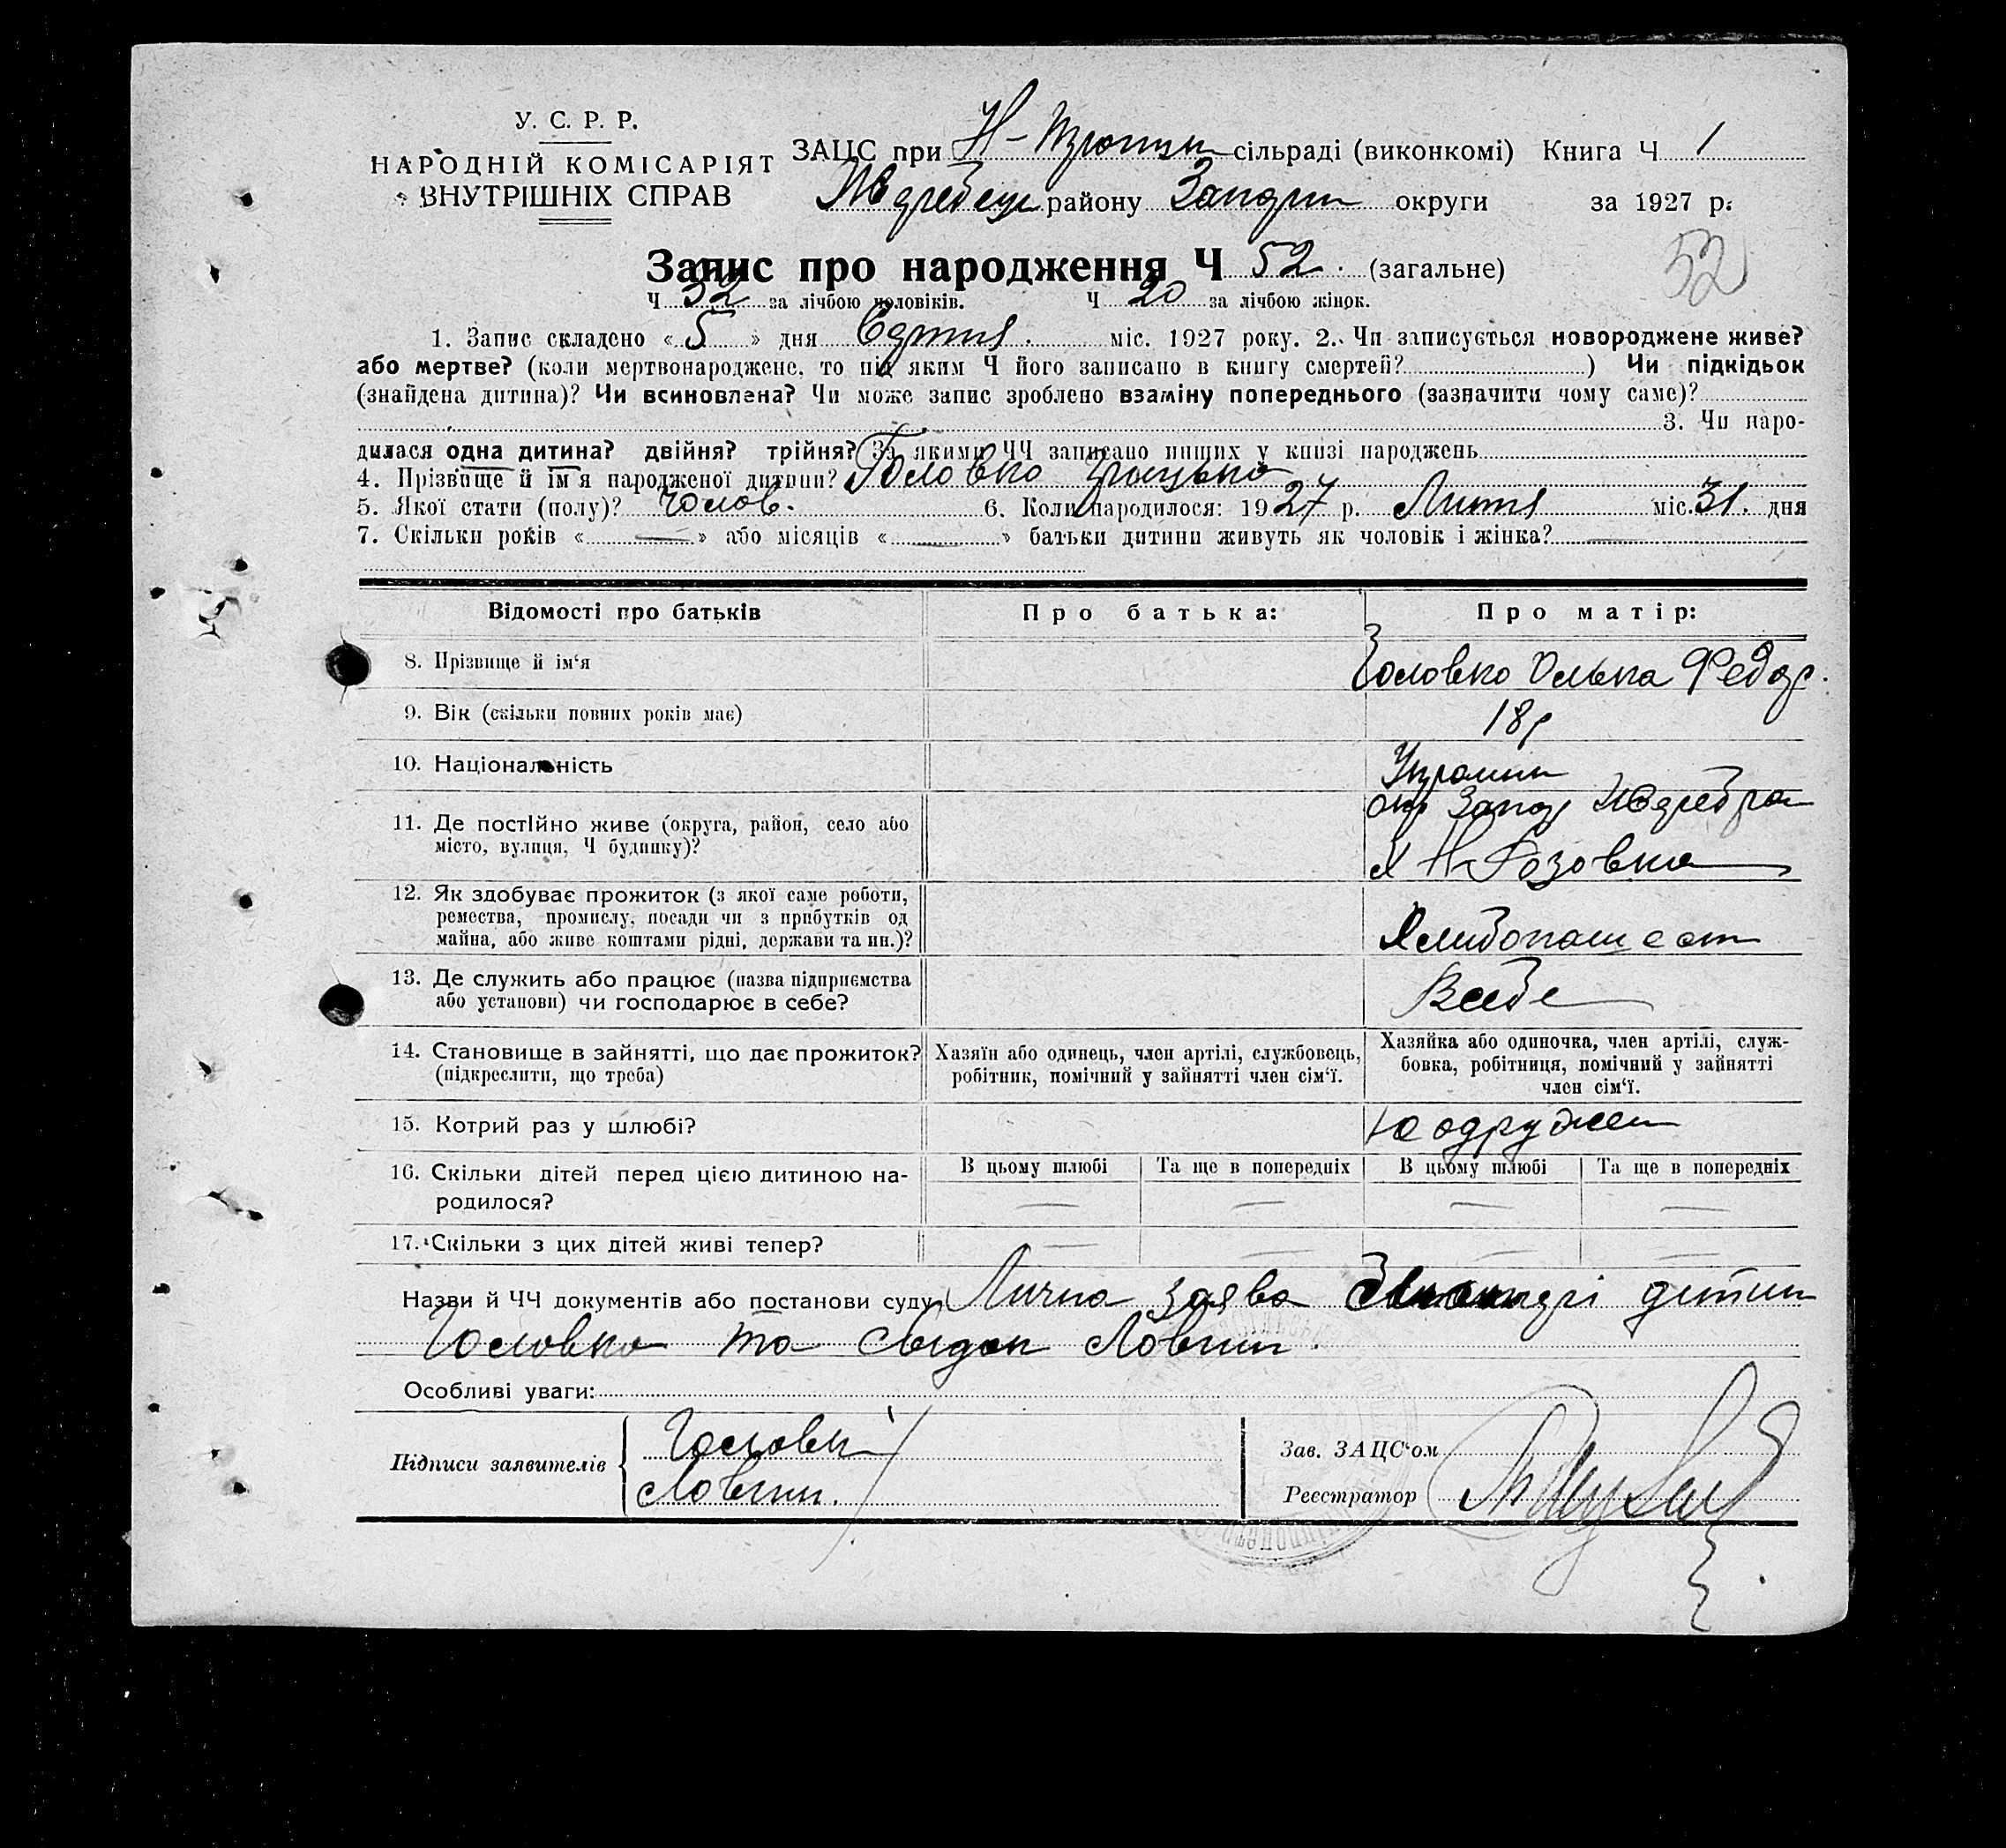 У. С. Р. Р.
НАРОДНІЙ КОМІСАРІЯТ
ВНУТРІШНІХ СПРАВ
ЗАЦС при Н- сільраді (виконкомі) Книга Ч 1
району Запоріж округи за 1927 р.
Запис про народження Ч 52. (загальне)
52
Ч 32 за лічбою чоловіків. Ч 20 за лічбою жінок.
1. Запис складено « 5 » дня міс. 1927 року. 2. Чи записується новороджене живе?
або мертве? (коли мертвонароджене, то під яким Ч його записано в книгу смертей? ) Чи підкідьок
(знайдена дитина)? Чи всиновлена? Чи може запис зроблено взаміну попереднього (зазначити чому саме)?
3. Чи наро-
дилася одна дитина? двійня? трійня? За якими ЧЧ записано инших у книзі народжень
4. Прізвище й ім'я народженої дитини? Головко Грицько
5. Якої стати (полу)? Чолов. 6. Коли народилося: 1927 р. Липня міс. 31. дня
7. Скільки років « — » або місяців « — » батьки дитини живуть як чоловік і жінка? —
Відомості про батьків Про батька: Про матір:
8. Прізвище й ім'я Головко Олька Федор.
9. Вік (скільки повних років має) 18 р
10. Національність Україн
11. Де постійно живе (округа, район, село або
місто, вулиця, Ч будинку)?
окр Запор
х Н-Розовка
12. Як здобуває прожиток (з якої саме роботи,
ремества, промислу, посади чи з прибутків од
майна, або живе коштами рідні, держави та ин.)?
Хлибопашест
13. Де служить або працює (назва підприємства
або установи) чи господарює в себе?
Всебе
14. Становище в зайнятті, що дає прожиток?
(підкреслити, що треба)
Хазяїн або одинець, член артілі, службовець,
робітник, помічний у зайнятті член сім'ї.
Хазяйка або одиночка, член артілі, служ-
бовка, робітниця, помічний у зайнятті
член сім'ї.
15. Котрий раз у шлюбі? одружен
16. Скільки дітей перед цією дитиною на-
родилося?
В цьому шлюбі Та ще в попередніх В цьому шлюбі Та ще в попередніх
— — — —
17. Скільки з цих дітей живі тепер? — — — —
Назви й ЧЧ документів або постанови суду Лична заява дитин
Головко та свідок Ловгин.
Особливі уваги:
Підписи заявителів
Головк
Ловгин.
Зав. ЗАЦС'ом
Реєстратор